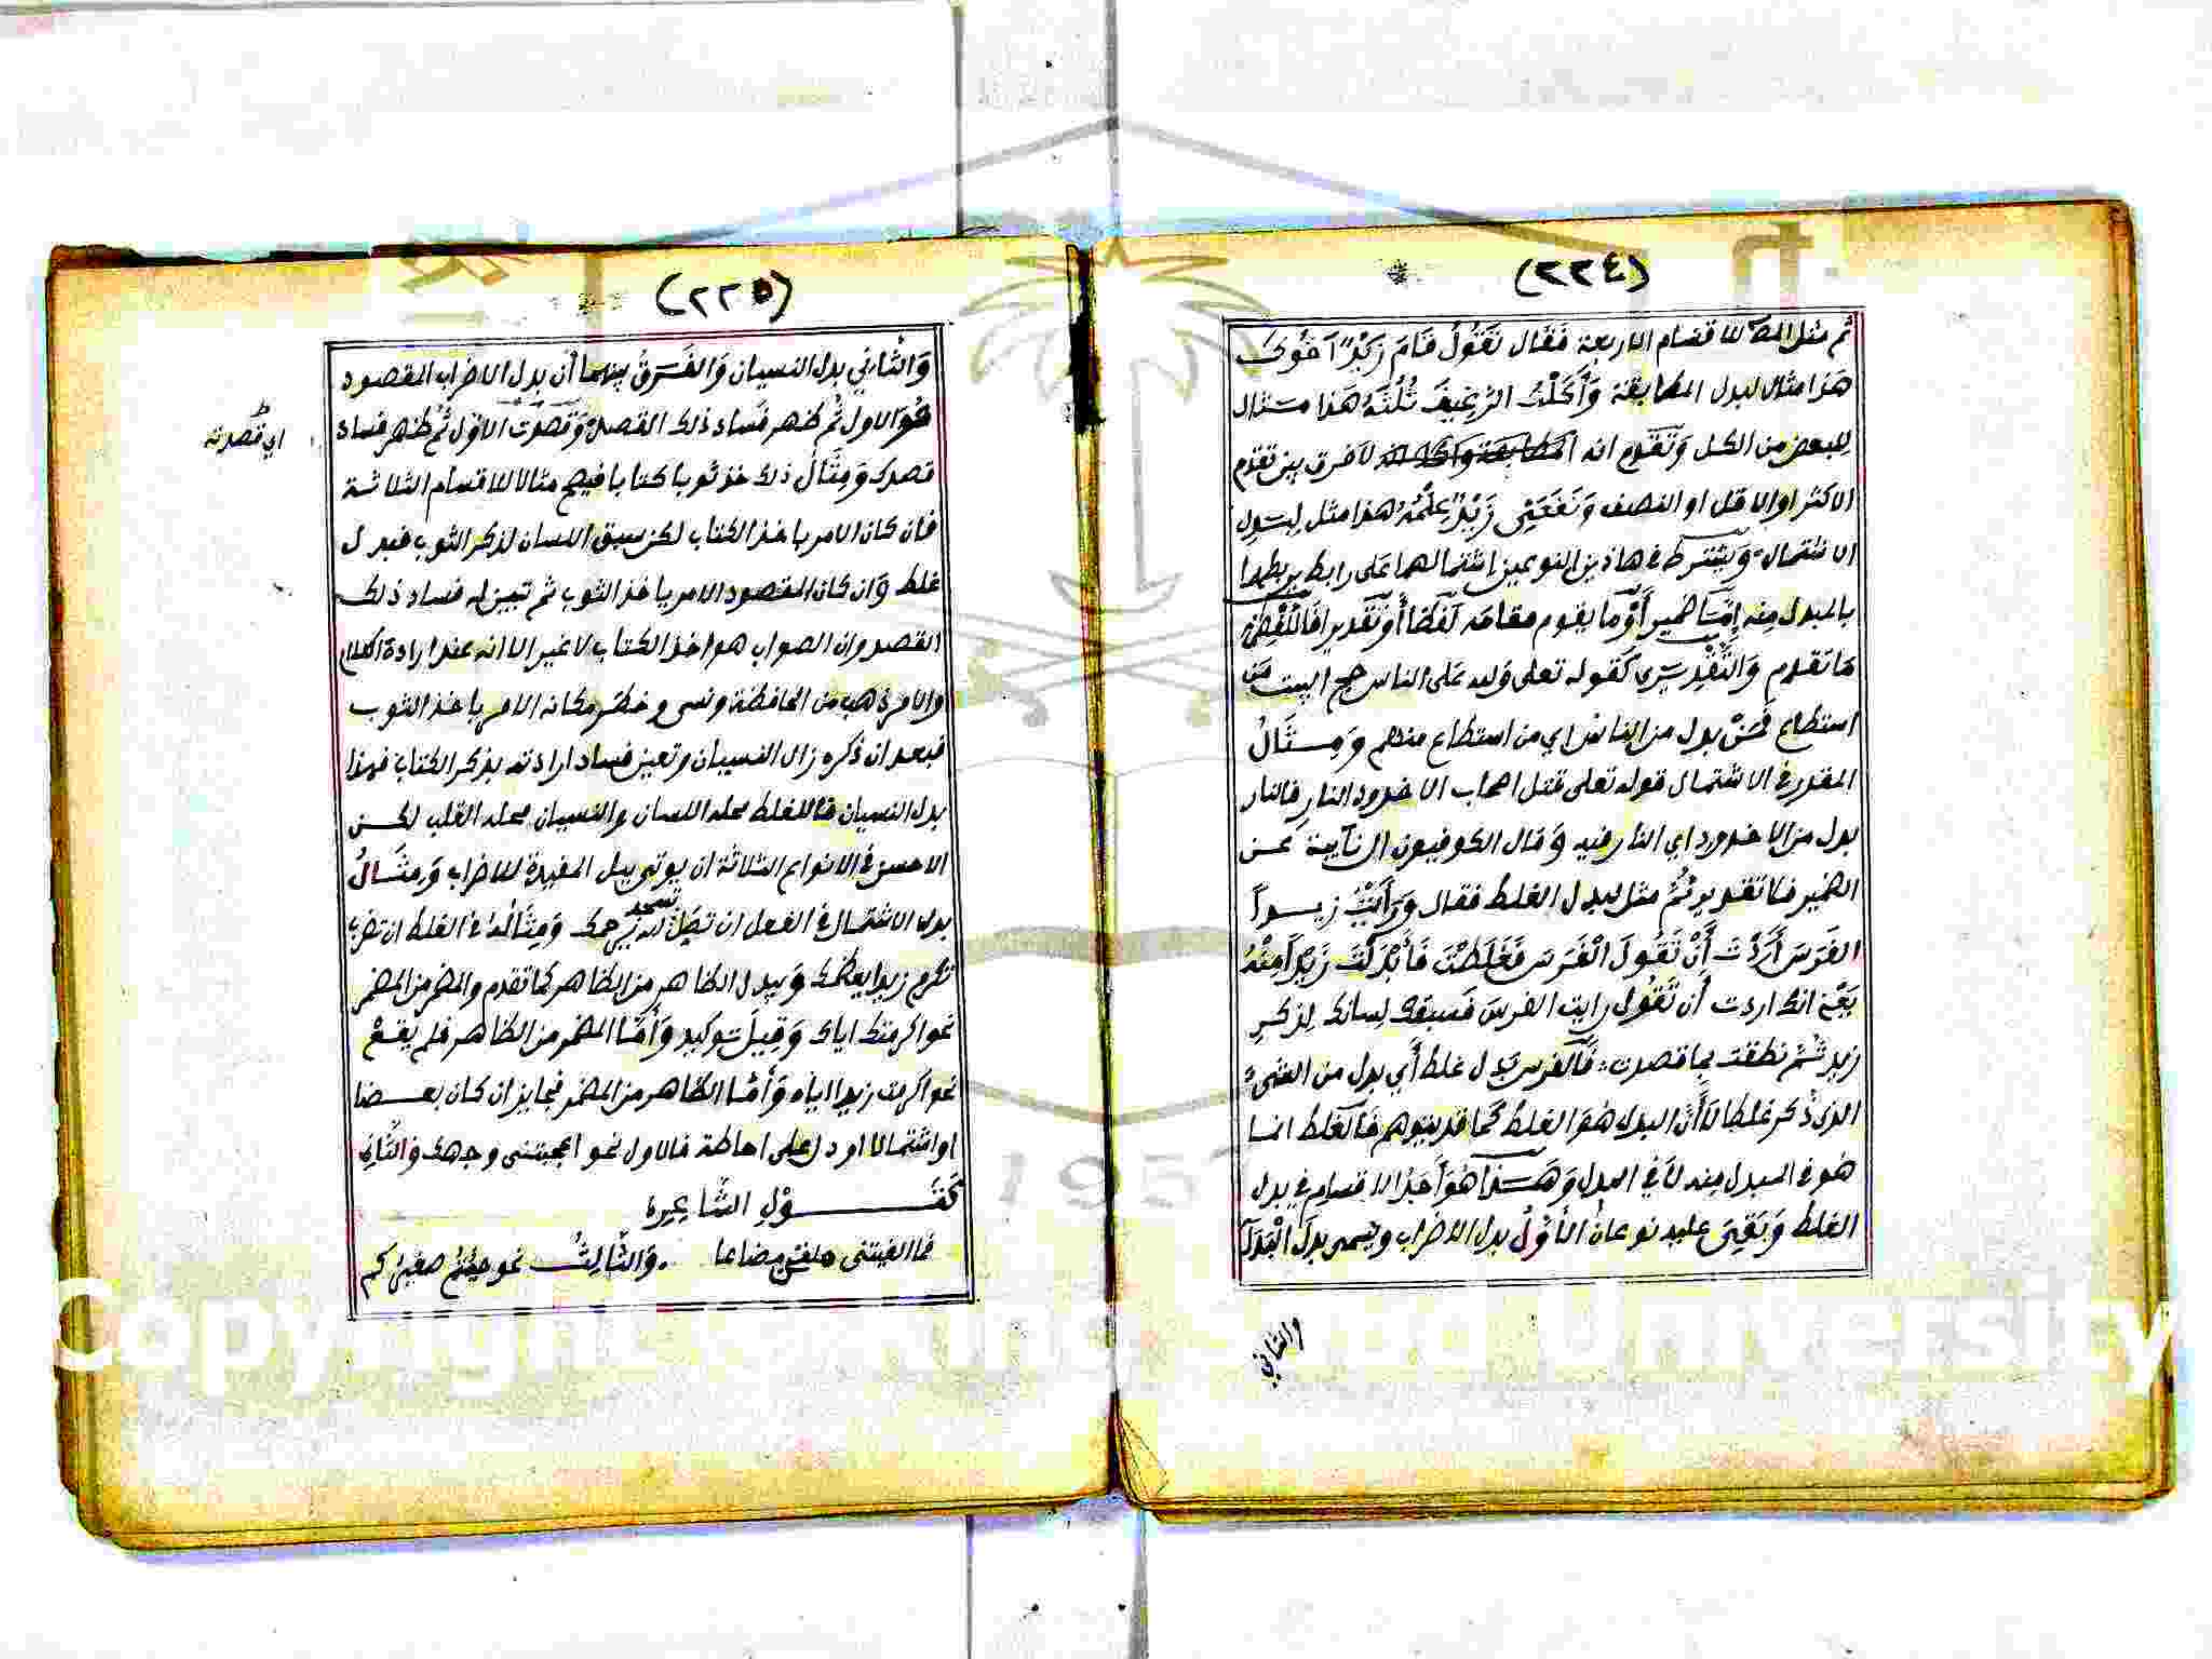 (٢٢٤)
ثم مثل المص للاقسام الاربعة فقال تَقُولُ قَامَ زَيْدٌ اَخُوكَ
هذا مثال لبدل المطابقة وَأَكَلْتُ الرَّغِيفَ ثُلُثَهُ هَذا مثال
للبعض من الكل وتقدم انه لا فرق بين تقدم
الاكثر او الاقل او النصف وَنَفَعَنِي زَيْدٌ عِلْمُهُ هذا مثل لبدل
الاشتمال ويشترط في هاذين النوعين اشتمالهما على رابط يربطهما
بالمبدل منه إمّا ضمير أو ما يقوم مقامه لفظا أو تقديرا فاللفظي
ما تقدم والتقديري كقوله تعلى ولله على الناس حج البيت من
استطاع فَمَنْ بدل من الناس اي من استطاع منهم وَمِثَالُ
المقدر في الاشتمال قوله تعلى قتل اصحاب الاخدود النار فالنار
بدل من الاخدود اي النار فيه وقال الكوفيون ال نآيبة عن
الضمير فلا تقدير ثُمَّ مثل لبدل الغلط فقال وَرَأَيْتُ زيداً
الفَرَسَ أَرَدْتَ أَنْ تَقُولَ الْفَرَسَ فَغَلَطْتَ فَأَبْدَلْتَ زَيْدًا مِنْهُ
يَعْنِي انك اردت أن تَقُول رايت الفرسَ فسبقك لِسانك لِذكرِ
زيد ثُمَّ نطقت بما قصدت فَالفرس بَدل غلط أي بدل من الشيء
الذي ذُكر غلطا لا أَنَّ البدل هُوَ الغلط كما قد يتوهم فالغلط انما
هُو في المبدل منه لا في البدل وَهَذا هُوَ اَحَدُ الاقسامِ في بدل
الغلط وَبَقِيَ عليه نوعان الأَوَّلُ بدل الاضراب ويسمى بدل البَدَا
والثاني
(٢٢٥)
وَالثَّانِي بدل النسيان وَالفَرقُ بينهما أن بدل الاضراب المقصود
هُوَ الاول ثُم ظهر فَساد ذلك القصد وَقصدت الاول ثُم ظهر فساد
اي قصدته
قصدك وَمِثَالُ ذلك خذ ثوبا كتابا فيصح مثالا للاقسام الثلاثة
فان كان الامر باخذ الكتاب لكن سبق اللسان لذكر الثوب فبدل
غلط وَان كان المقصود الامر باخذ الثوب ثم تبين له فساد ذلك
القصد وان الصواب هو اخذ الكتاب لا غير الا انه عند ارادة الكلام
والامر ذهب من الحافظة ونسى وخطر مكانه الامر باخذ الثوب
فبعد ان ذكره زال النسيان وتعين فساد ارادته بذكر الكتاب فهذا
بدل النسيان فالغلط محله اللسان والنسيان محله القلب لكن
الاحسن في الانواع الثلاثة ان يوتى ببل المفيدة للاضراب وَمِثَالُ
بدل الاشتمال في الفعل ان تصل تسجد لله يرحمك وَمِثَالُه في الغلط ان تضرب
تكرم زيدا يعطك وَيبدل الظاهر من الظاهر كما تقدم والمضمر من المضمر
نحو اكرمتك اياك وَقِيلَ توكيد وَأَمَّا المضمر من الظاهر فلم يقعْ
نحو اكرمت زيدا اياه وَأَمَّا الظاهر من المضمر فجايز ان كان بعضا
او اشتمالا او دل على احاطة فالاول نحو اعجبتنى وجهك والثاني
كَقَوْلِ الشَّاعِرِ
فما الفيتنى حلمى مضاعا . وَالثَّالِثُ نحو جئتم صغيركم